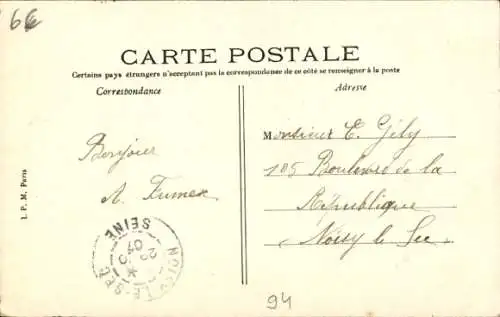 66
CARTE POSTALE
Certains pays étrangers n'acceptent pas la correspondance de ce côté se renseigner à la poste
Correspondance
Adresse
Bonjour
A. Fumex
Monsieur E. Gély
105 Boulevard de la
République
Noisy le Sec
I. P. M. Paris
NOISY-LE-SEC
SEINE
94